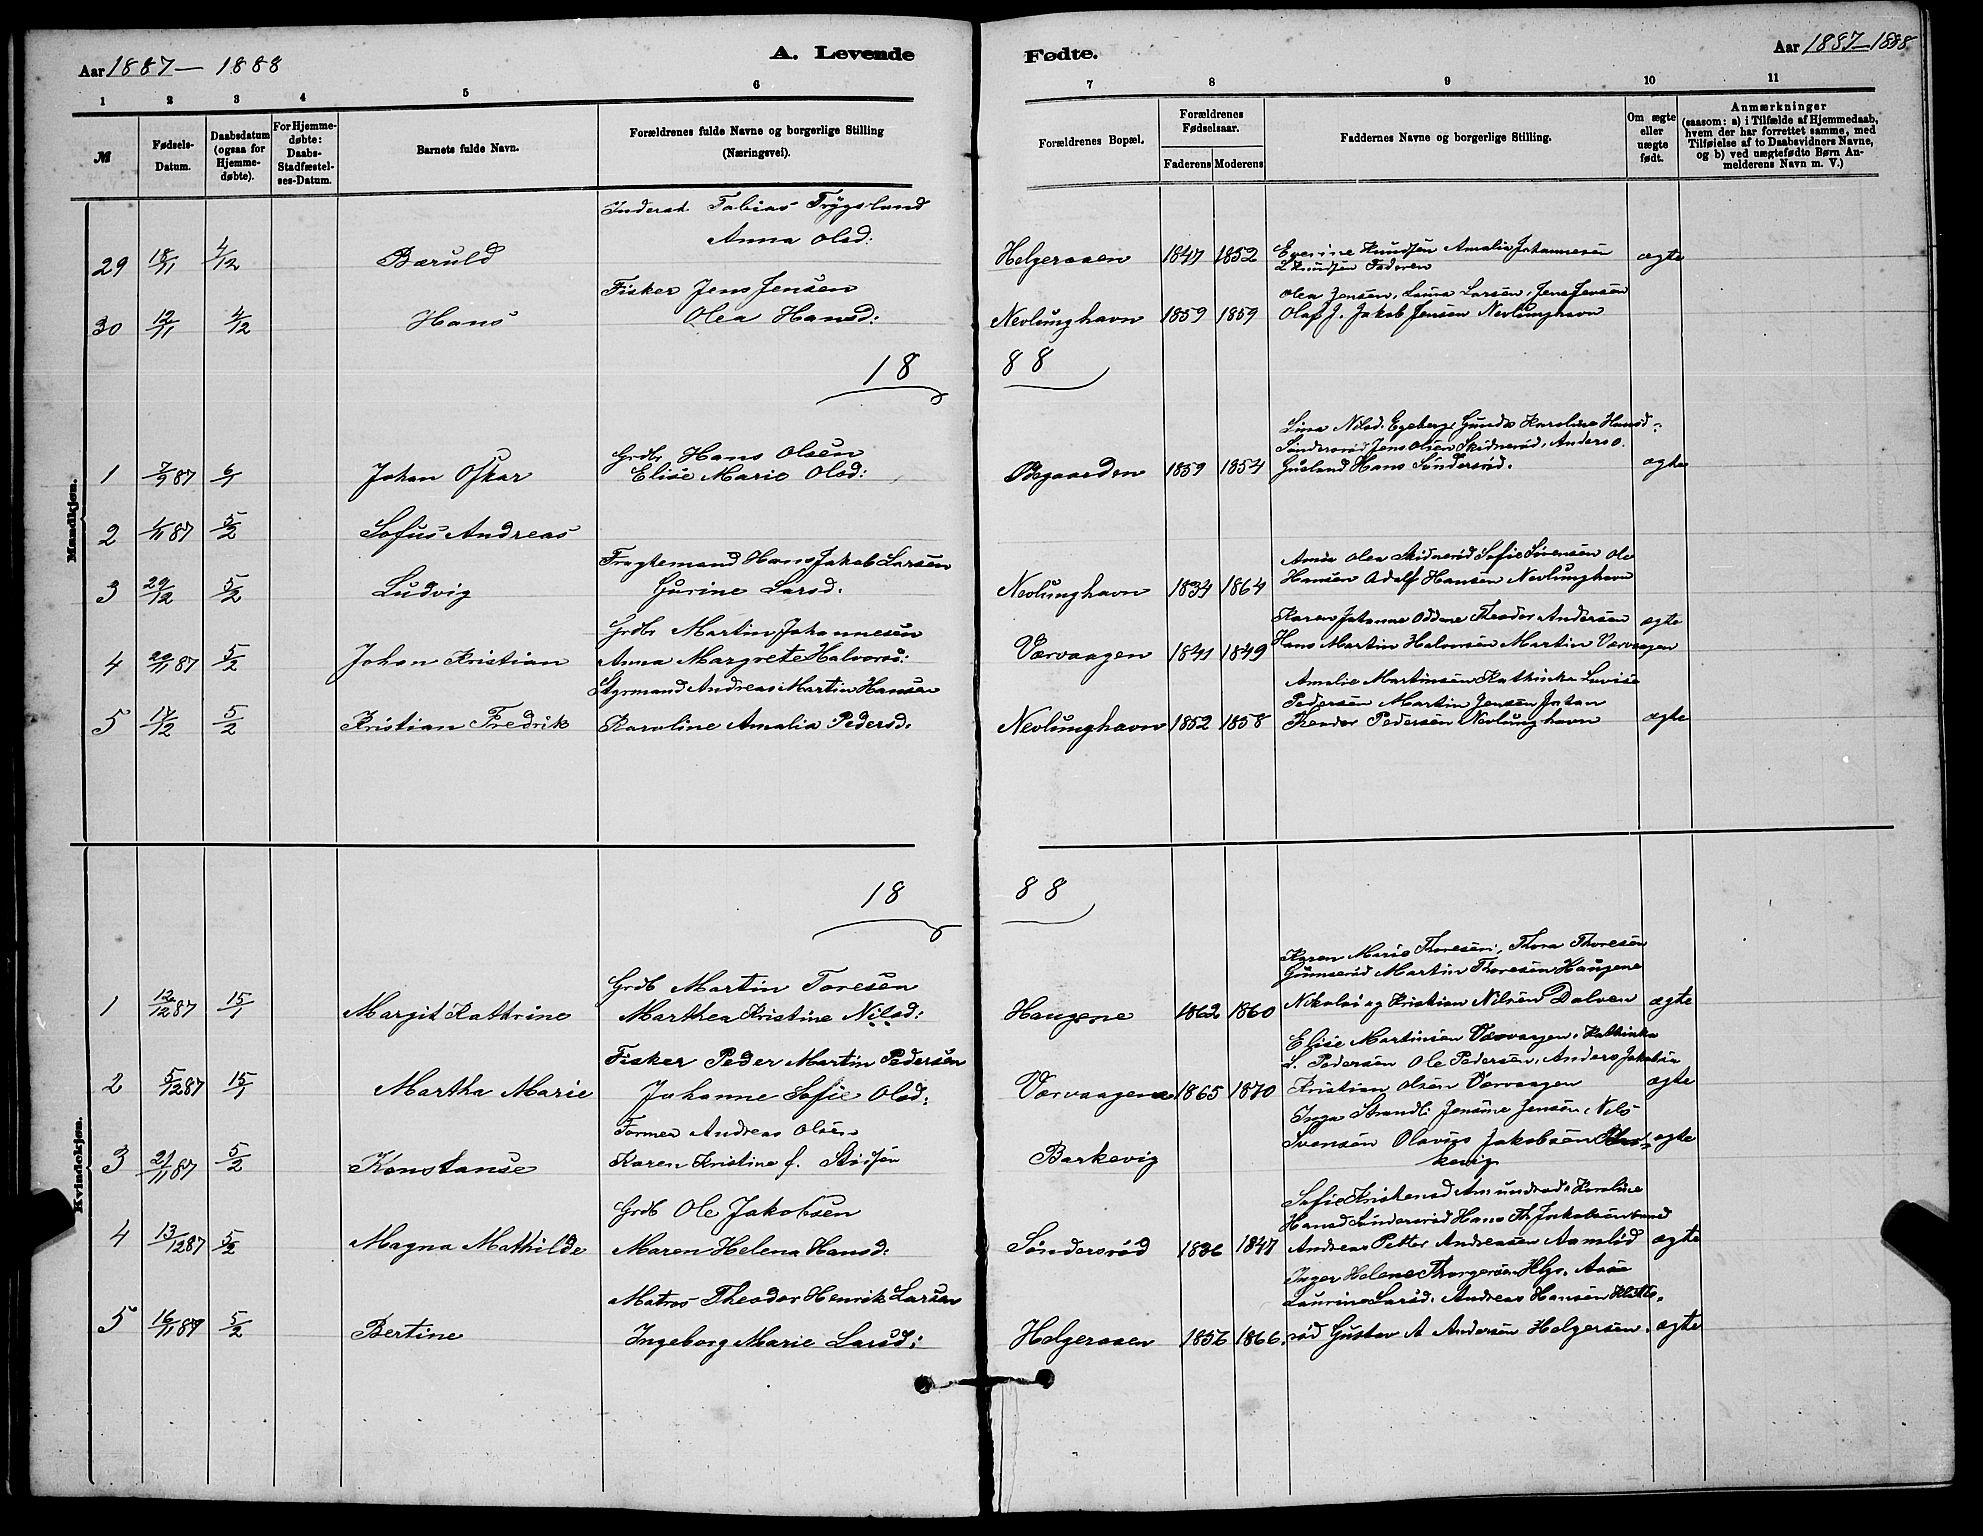 Aar 1887 — 1888
A. Levende
Fødte.
Aar 1887—1888
1 2 3 4 5 6 7 8 9 10 11
№
Fødsels-
Datum.
Daabsdatum
(ogsaa for
Hjemme-
døbte).
For Hjemme-
døbte:
Daabs-
Stadfæstel-
ses-Datum.
Barnets fulde Navn.
Forældrenes fulde Navne og borgerlige Stilling
(Næringsvei).
Forældrenes Bopæl.
Forældrenes
Fødselsaar.
Faderens Moderens
Faddernes Navne og borgerlige Stilling.
Om ægte
eller
uægte
født.
Anmærkninger
(saasom: a) i Tilfælde af Hjemmedaab,
hvem der har forrettet samme, med
Tilføielse af to Daabsvidners Navne,
og b) ved uægtefødte Børn An-
melderens Navn m. V.)
Mandkjøn.
Inderst Tobias Trygslund
Anna Olsd:
29 18/11 4/12 Baruld Helgeroaen 1847 1852 Everine Knudsen Amalia Johannesen ægte
L Knudsen Faderen
Fisker Jens Jensen
Olea Jensen, Laura Larsen, Jens Jensen
30 12/11 4/12 Hans Olea Hansd: Nevlunghavn 1859 1859 Olaf J. Jakob Jensen Nevlunghavn
18 88
Lina Nilsd. Egeberg, Gunda Karoline Hansd:
Grdbr Hans Olsen Søndersrød Jens Olsen Skidnerød, Anders O.
1 7/9 87 6/1 Johan Oskar Elise Marie Olsd:Øvgaarden 1859 1854 Gusland Hans Søndersrød. ægte
2 1/11 87 5/2 Sofus Andreas
Fragtemand Hans Jakob Larsen
Anne Olea Skidnerød Sofie Sørensen Ole
3 29/12 5/2 Ludvig Gurine Larsd. Nevlunghavn 1834 1864 Hansen Adolf Hansen Nevlunghavn
Grdbr Martin Johannesen Karen Johanne Oddene Theodor Andersen ægte
4 20/11 87 5/2 Johan Kristian Anna Margrete Halvors: Værvaagen 1841 1849 Hans Martin Halvorsen Martin Værvaagen
Styrmand Andreas Martin Hansen
Amalie Martinsen Kathinka Lovise
Pedersen Martin Jensen Johan
5 17/12 5/2 Kristian Fredrik Karoline Amalia Pedersd: Nevlunghavn 1852 1858 Theodor Pedersen Nevlunghavn ægte
Kvindekjøn.
18 88
Karen Marie Thoresen, Thora Thoresen
Grdb Martin Toresen Gumserød Martin Thoresen Haugene
1 12/12 87 15/1 Margit Kathrine Marthea Kristine Nilsd: Haugene 1862 1860 Nikolai og Kristian Nilsen Dalven ægte
Elise Martinsen Værvaagen, Kathinka
Fisker Peder Martin Pedersen L. Pedersen Ole Pedersen, Anders Jakobsen
2 5/12 87 15/1 Martha Marie Johanne Sofie Olsd: Værvaagene 1865 1870 Kristian Olsen Værvaagen ægte
Former Andreas Olsen
Inga Strandli Jensine Jensen, Nils
Svensen Olavus Jakobsen Bar-
3 21/11 87 5/2 Konstanse Karen Kristine f. Barkevig kevig ægte
Grdb Ole Jakobsen
Sofie Kristensd Amundrød Karoline
Hansd Søndersrød Hans Th Jakobsen
4 13/12 87 5/2 Magna Mathilde Maren Helena Hansd: Søndersrød 1836 1847 Andreas Petter Andreasen Aamlid ægte
Matros Theodor Henrik Larsen
Inger Helene Thorgersen Hlgr. Anne
Laurine Larsd. Andreas Hansen Klette-
5 16/11 87 5/2 Bertine Ingeborg Marie Larsd: Helgeroaen 1856 1866 rød Gustav A Andersen Helgeroen. ægte